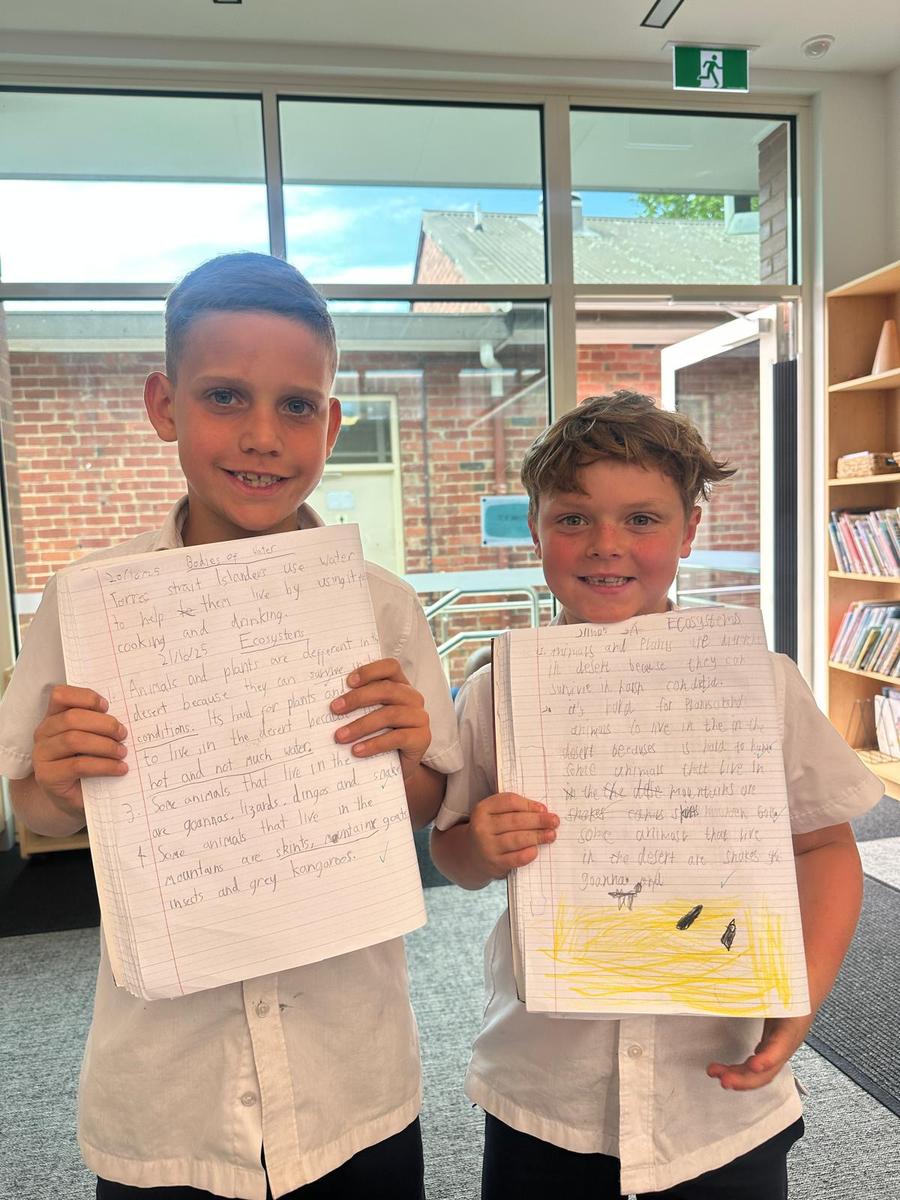 20/10/25 Bodies of Water
Torres strait Islanders use water
to help them live by using it
cooking and drinking.
21/10/25 Ecosystems
Animals and plants are defferent in
desert because they can survive
conditions. Its hard for plants
to live in the desert because
hot and not much water.
3. Some animals that live in the
are goannas, lizards, dingos and snake
4. Some animals that live in the
mountains are skints, mountains goats
insects and grey kangaroos.
Ecosystems
Animals and Plants are
in desert because they can
survive in harsh
it's hard for
animals to live in the in the
desert becauses is hard to
some animals that live in
the the the mountains are
snakes
some animals that live
in the desert are snakes
goanna and